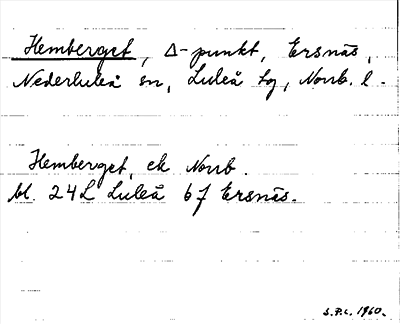 Hemberget, Δ-punkt, Ersnäs,
Nederluleå sn, Luleå tg, Norrb. l.
Hemberget, ek Norrb.
bl. 24L Luleå 6f Ersnäs.
S.P.L. 1960.